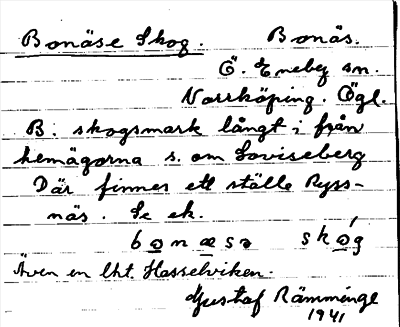 Bonäse Skog. Bonäs.
Ö. Eneby sn.
Norrköping. Ögl.
B: skogsmark långt i från
hemägorna s. om Loviseberg
Där finnes ett ställe Ryss-
näs. Se ek.
bonæsə skóg
Även en lht. Hasselviken.
Gustaf Rämminge
1941